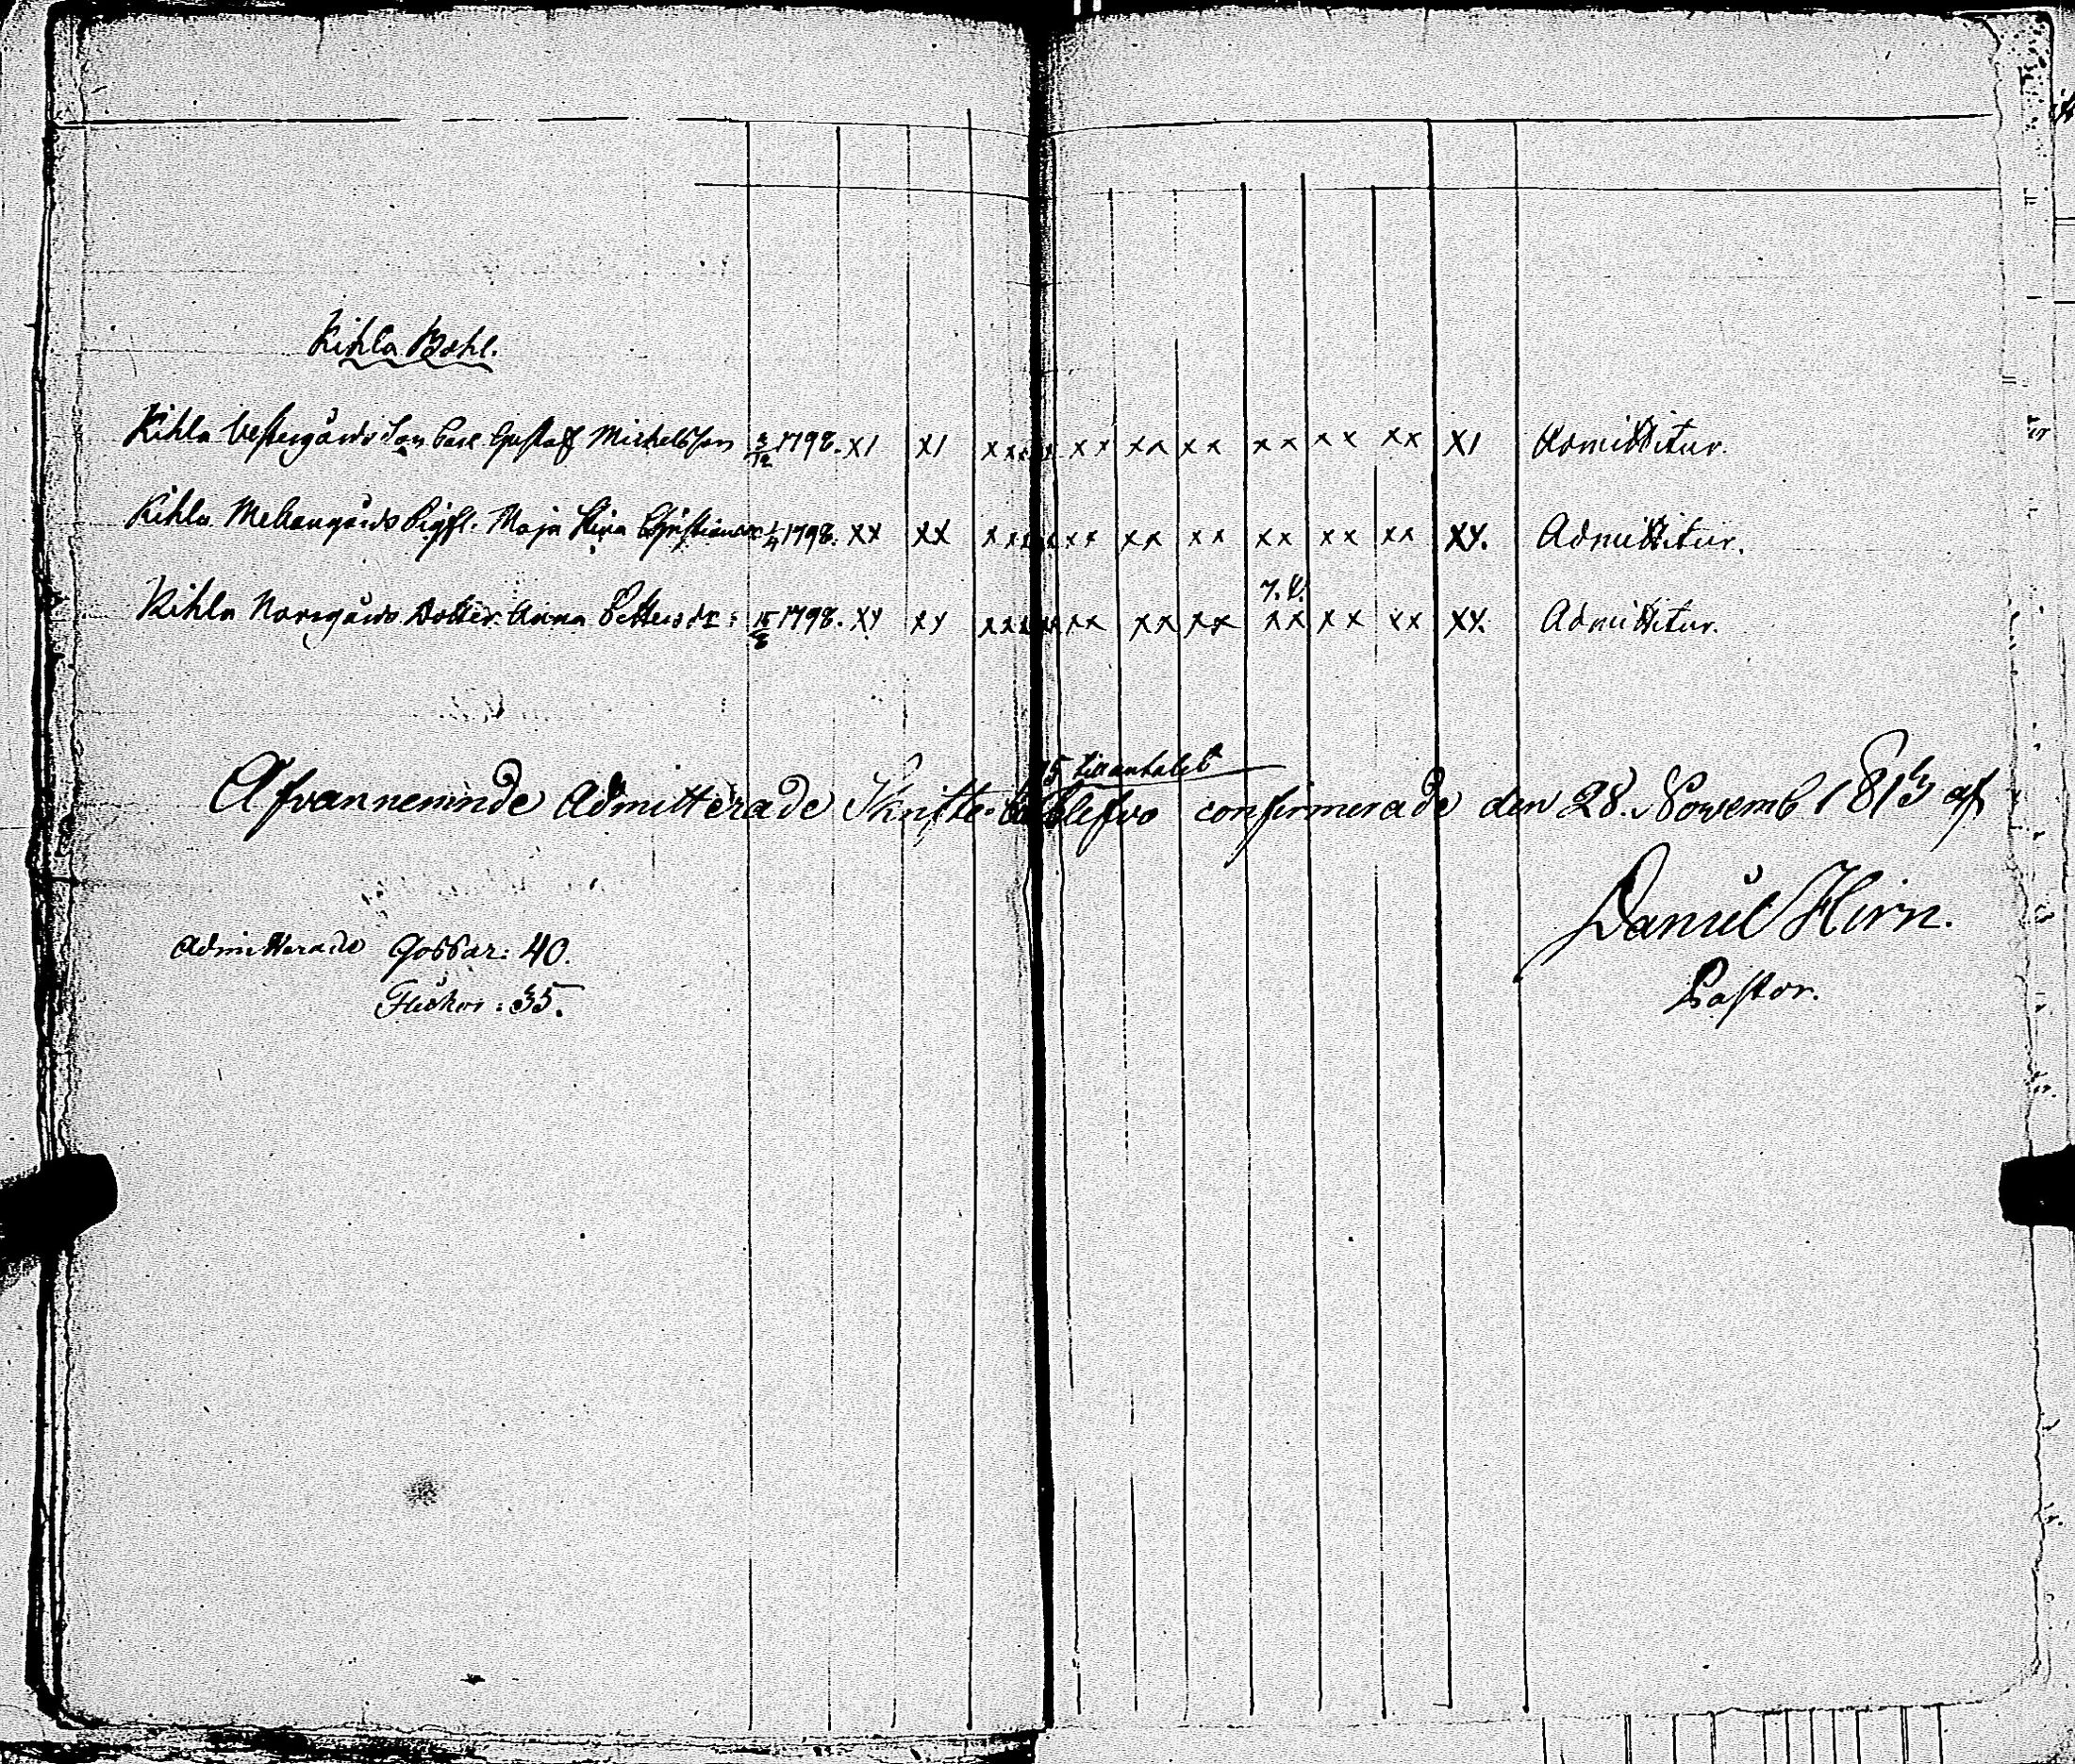 Kihla Bohl.
Kihla Vestergårds Son Carl Gustaff Michelsson 3/12 1798. XI XI xx xx xx xx xx xx xx XI Admittitur.
Kihla Mellangårds Maja Stina Christiansdr 1/4 1798. XX XX xx xx xx xx xx xx xx XX. Admittitur.
7. V.
Kihla Norrgårds Dotter Anna Pettersdr: 15/8 1798. XX XX xx xx xx xx xx xx xx XX. Admittitur.
75 till antalet
Afvannemnde Admitterade Skrifte confirmerade den 28. Novemb 1813 af
Daniel Hirn.
Pastor.
Admitterade Gossar: 40.
Flickor: 35.